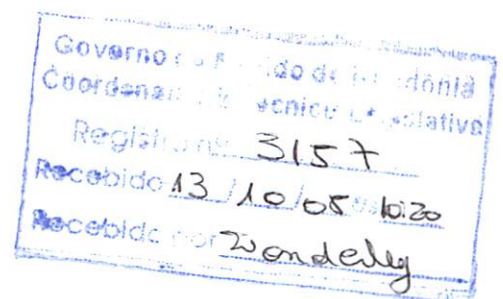 Governo do Estado de Rondônia
Coordenação Técnico Legislativa
Registro nº 3157
Recebido 13 / 10 / 05 às 10:20
Recebido por Wanderley